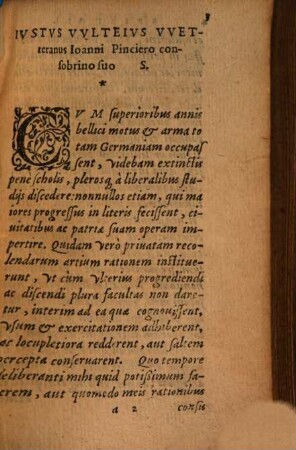 3
IVSTVS VVLTEIVS VVET-
teranus Ioanni Pinciero con-
sobrino suo S.
*
CVM superioribus annis
bellici motus & arma to
tam Germaniam occupaſ
ſent, videbam extinctis
pene ſcholis, plerosq́; à liberalibus ſtu-
dijs diſcedere: nonnullos etiam, qui ma
iores progreſſus in literis feciſſent, ci-
uitatibus ac patriæ ſuam operam im-
pertire. Quidam verò priuatam reco-
lendarum artium rationem inſtitue-
runt, vt cùm vlterius progrediendi
ac diſcendi plura facultas non dare
tur, interim ad ea quæ cognouiſſent,
vſum & exercitationem adhiberent,
ac locupletiora redderent, aut ſaltem
percepta conſeruarent. Quo tempore
deliberanti mihi quid potiſsimum fa-
cerem, aut quomodo meis rationibus
a 2 conſu